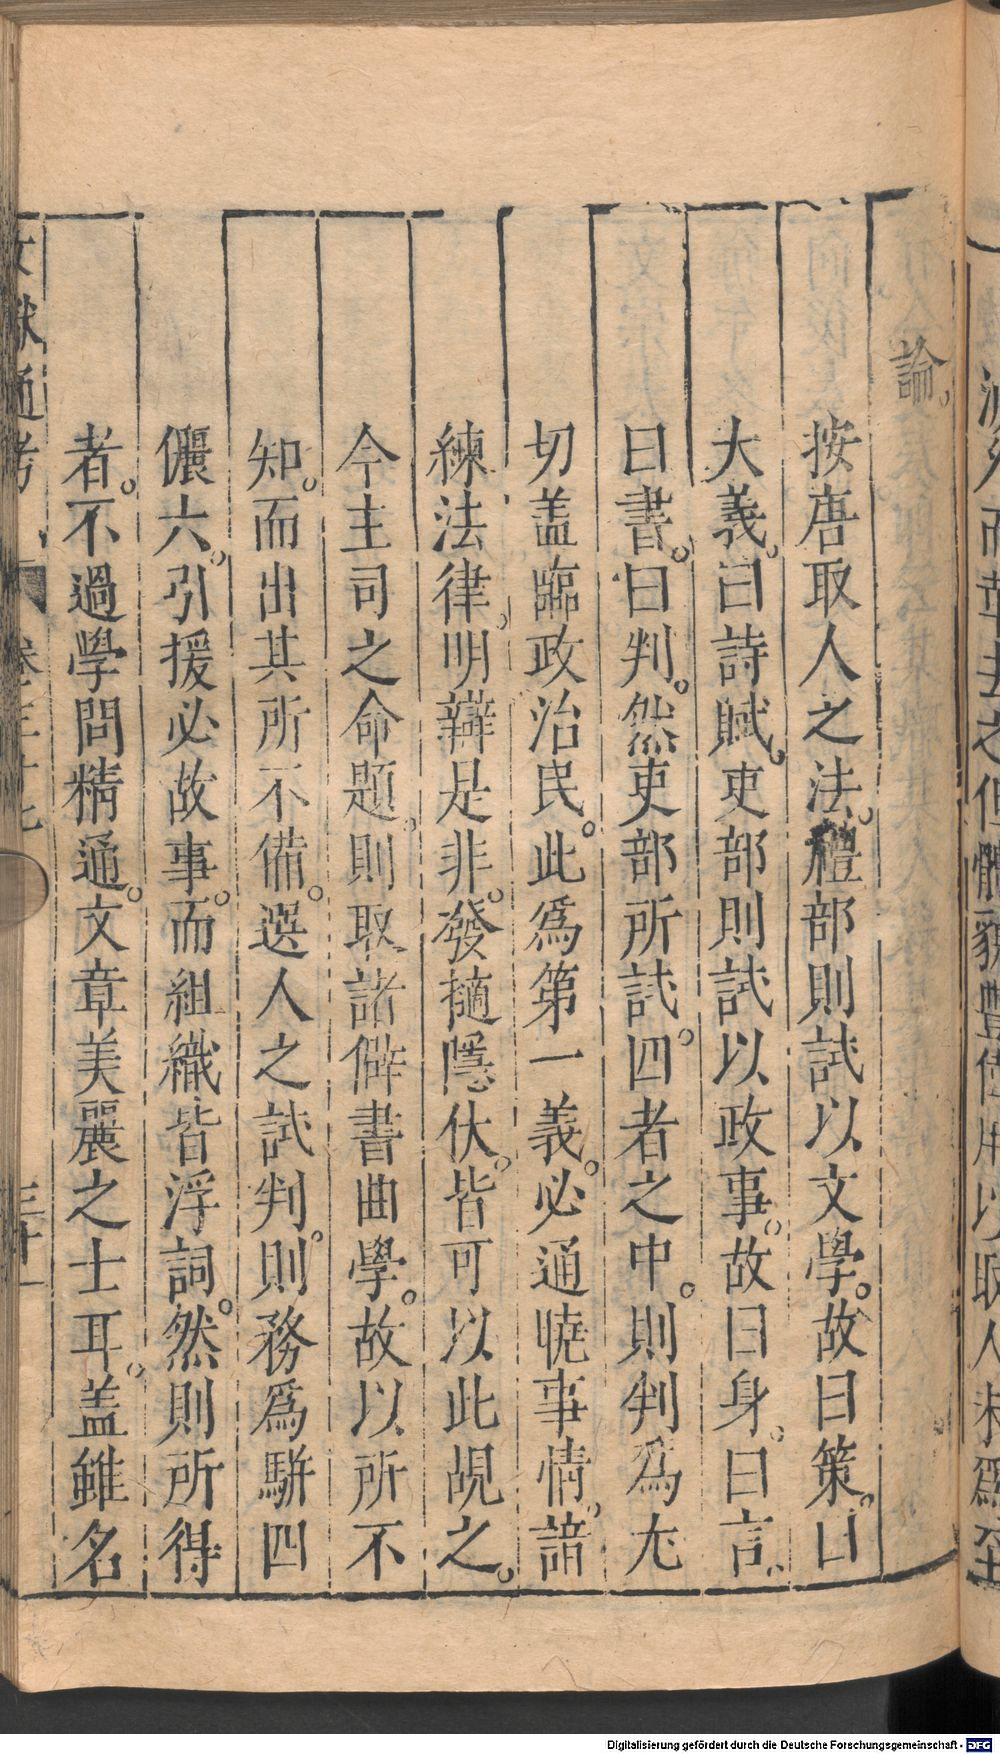 論。
按唐取人之法。禮部則試以文學。故曰策。曰
大義。曰詩賦。吏部則試以政事。故曰身。曰言。
曰書。曰判。然吏部所試。四者之中。則判爲尤
切盖臨政治民。此爲第一義。必通曉事情。諳
練法律。明辯是非。發擿隱伏。皆可以此覘之。
今主司之命題。則取諸僻書曲學。故以所不
知。而出其所不備。選人之試判。則務爲駢四
儷六。引援必故事。而組織皆浮詞。然則所得
者。不過學問精通。文章美麗之士耳。盖雖名
文獻通考 卷三十七 三十一
Digitalisierung gefördert durch die Deutsche Forschungsgemeinschaft - DFG